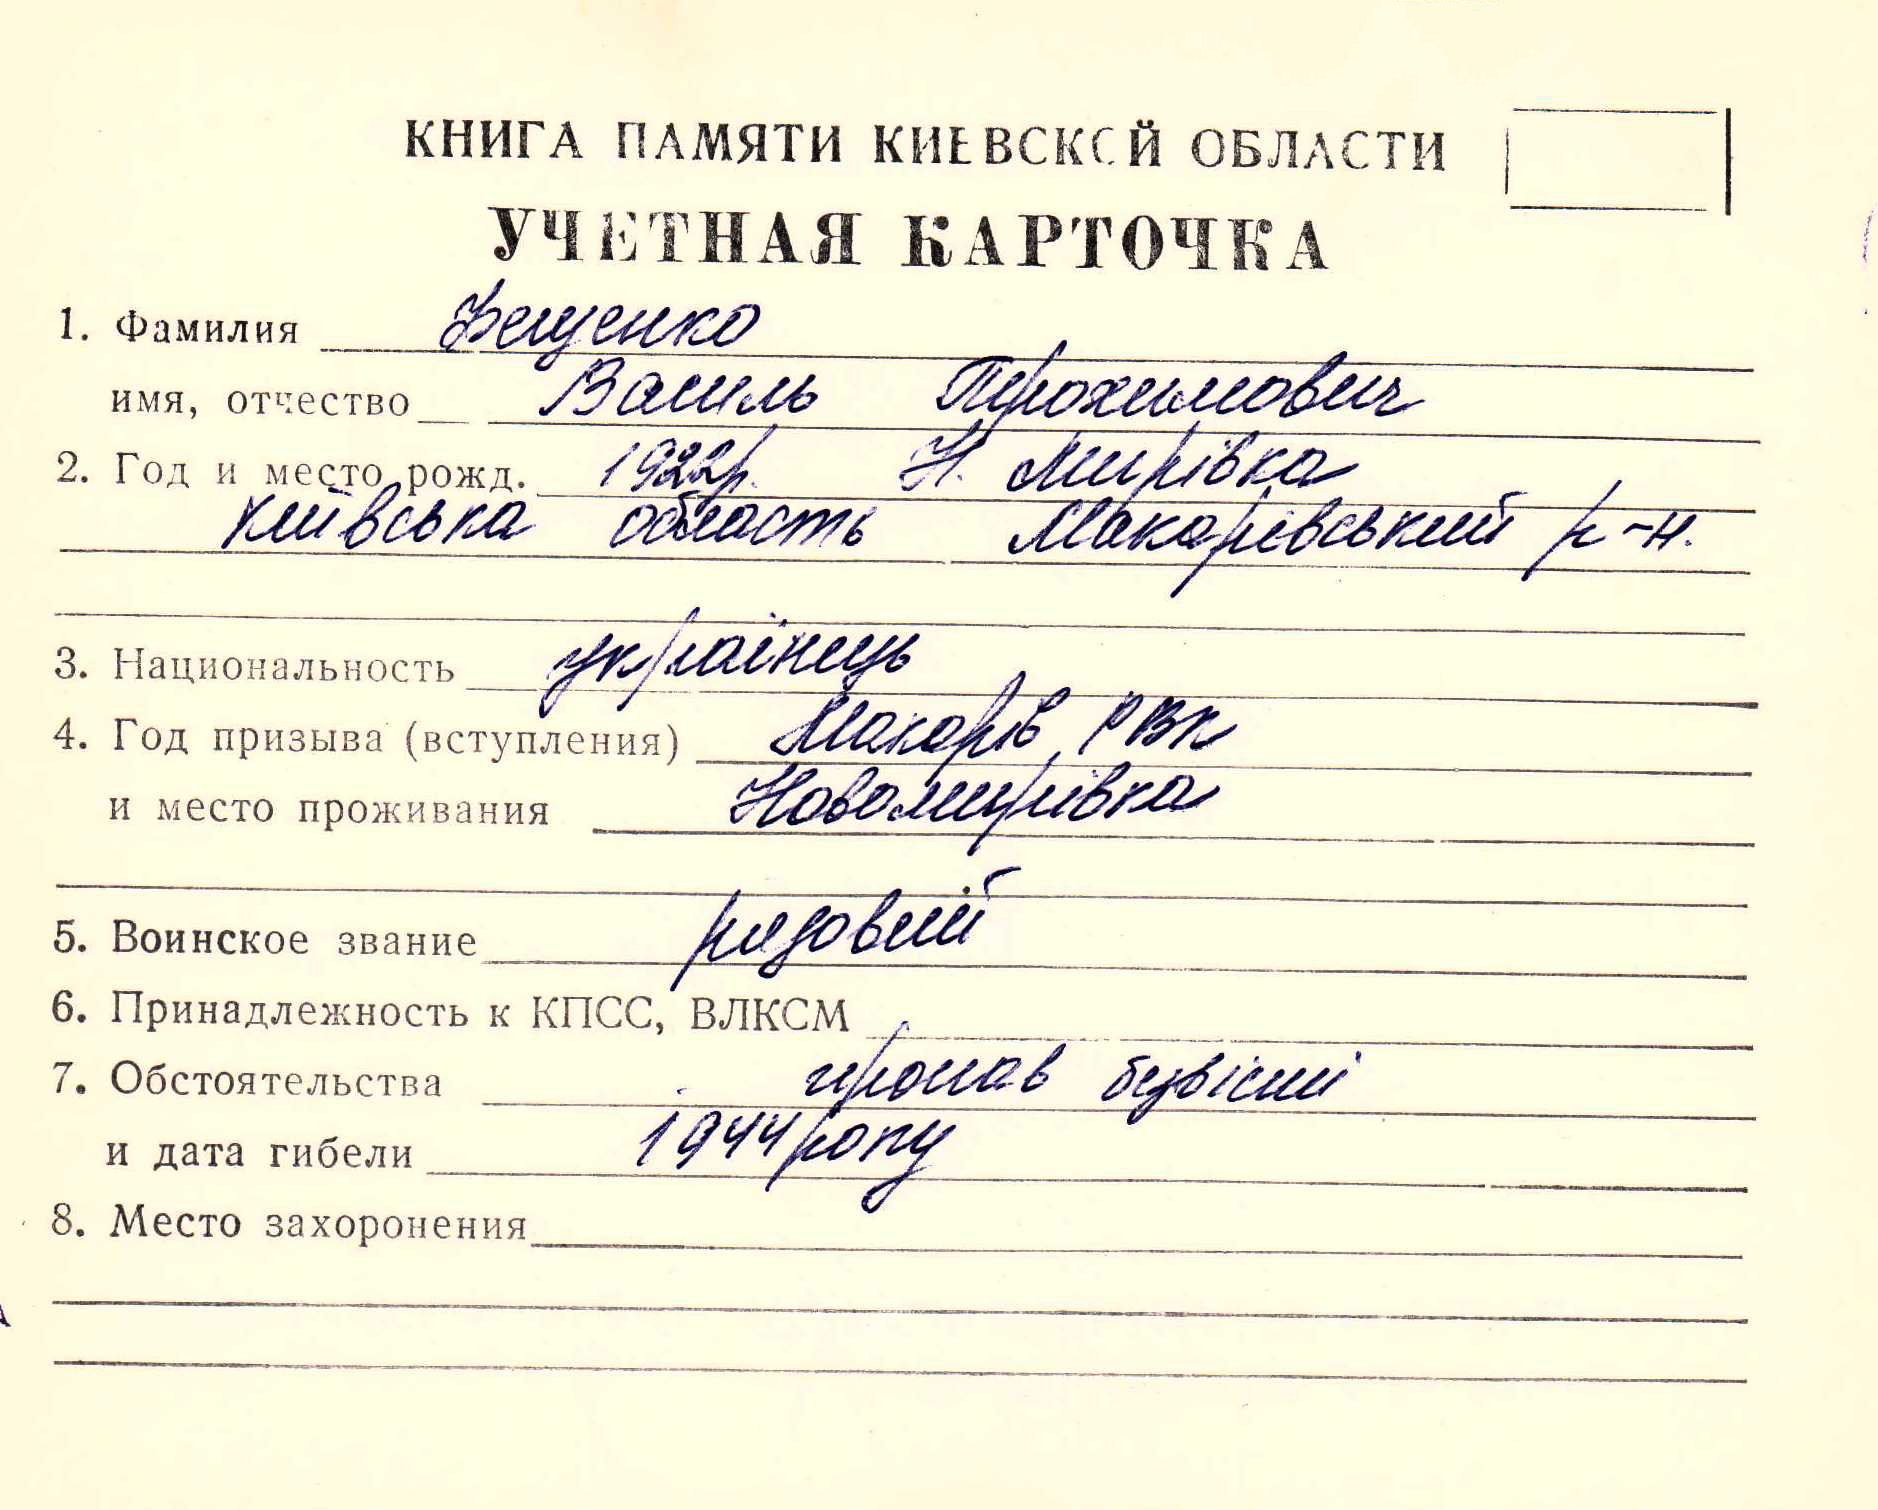 КНИГА ПАМЯТИ КИЕВСКОЙ ОБЛАСТИ
УЧЕТНАЯ КАРТОЧКА
1. Фамилия
имя, отчество Василь Прохимович
2. Год и место рожд. 1922р. Н. Мирівка
Київська область Макарівський р-н.
3. Национальность українець
4. Год призыва (вступления) Макарів РВК
и место проживания Новомирівка
5. Воинское звание рядовий
6. Принадлежность к КПСС, ВЛКСМ
7. Обстоятельства пропав безвісти
и дата гибели 1944 року
8. Место захоронения